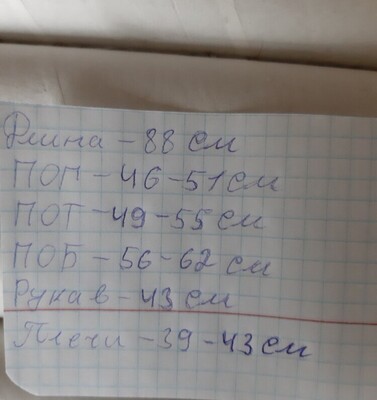 Длина - 88 см
ПОГ - 46 - 51 см
ПОТ - 49 - 55 см
ПОБ - 56 - 62 см
Рукав - 43 см
Плечи - 39 - 43 см